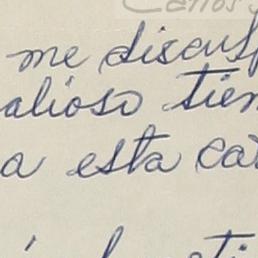 Carlos
me discusp
alioso tiem
a esta car